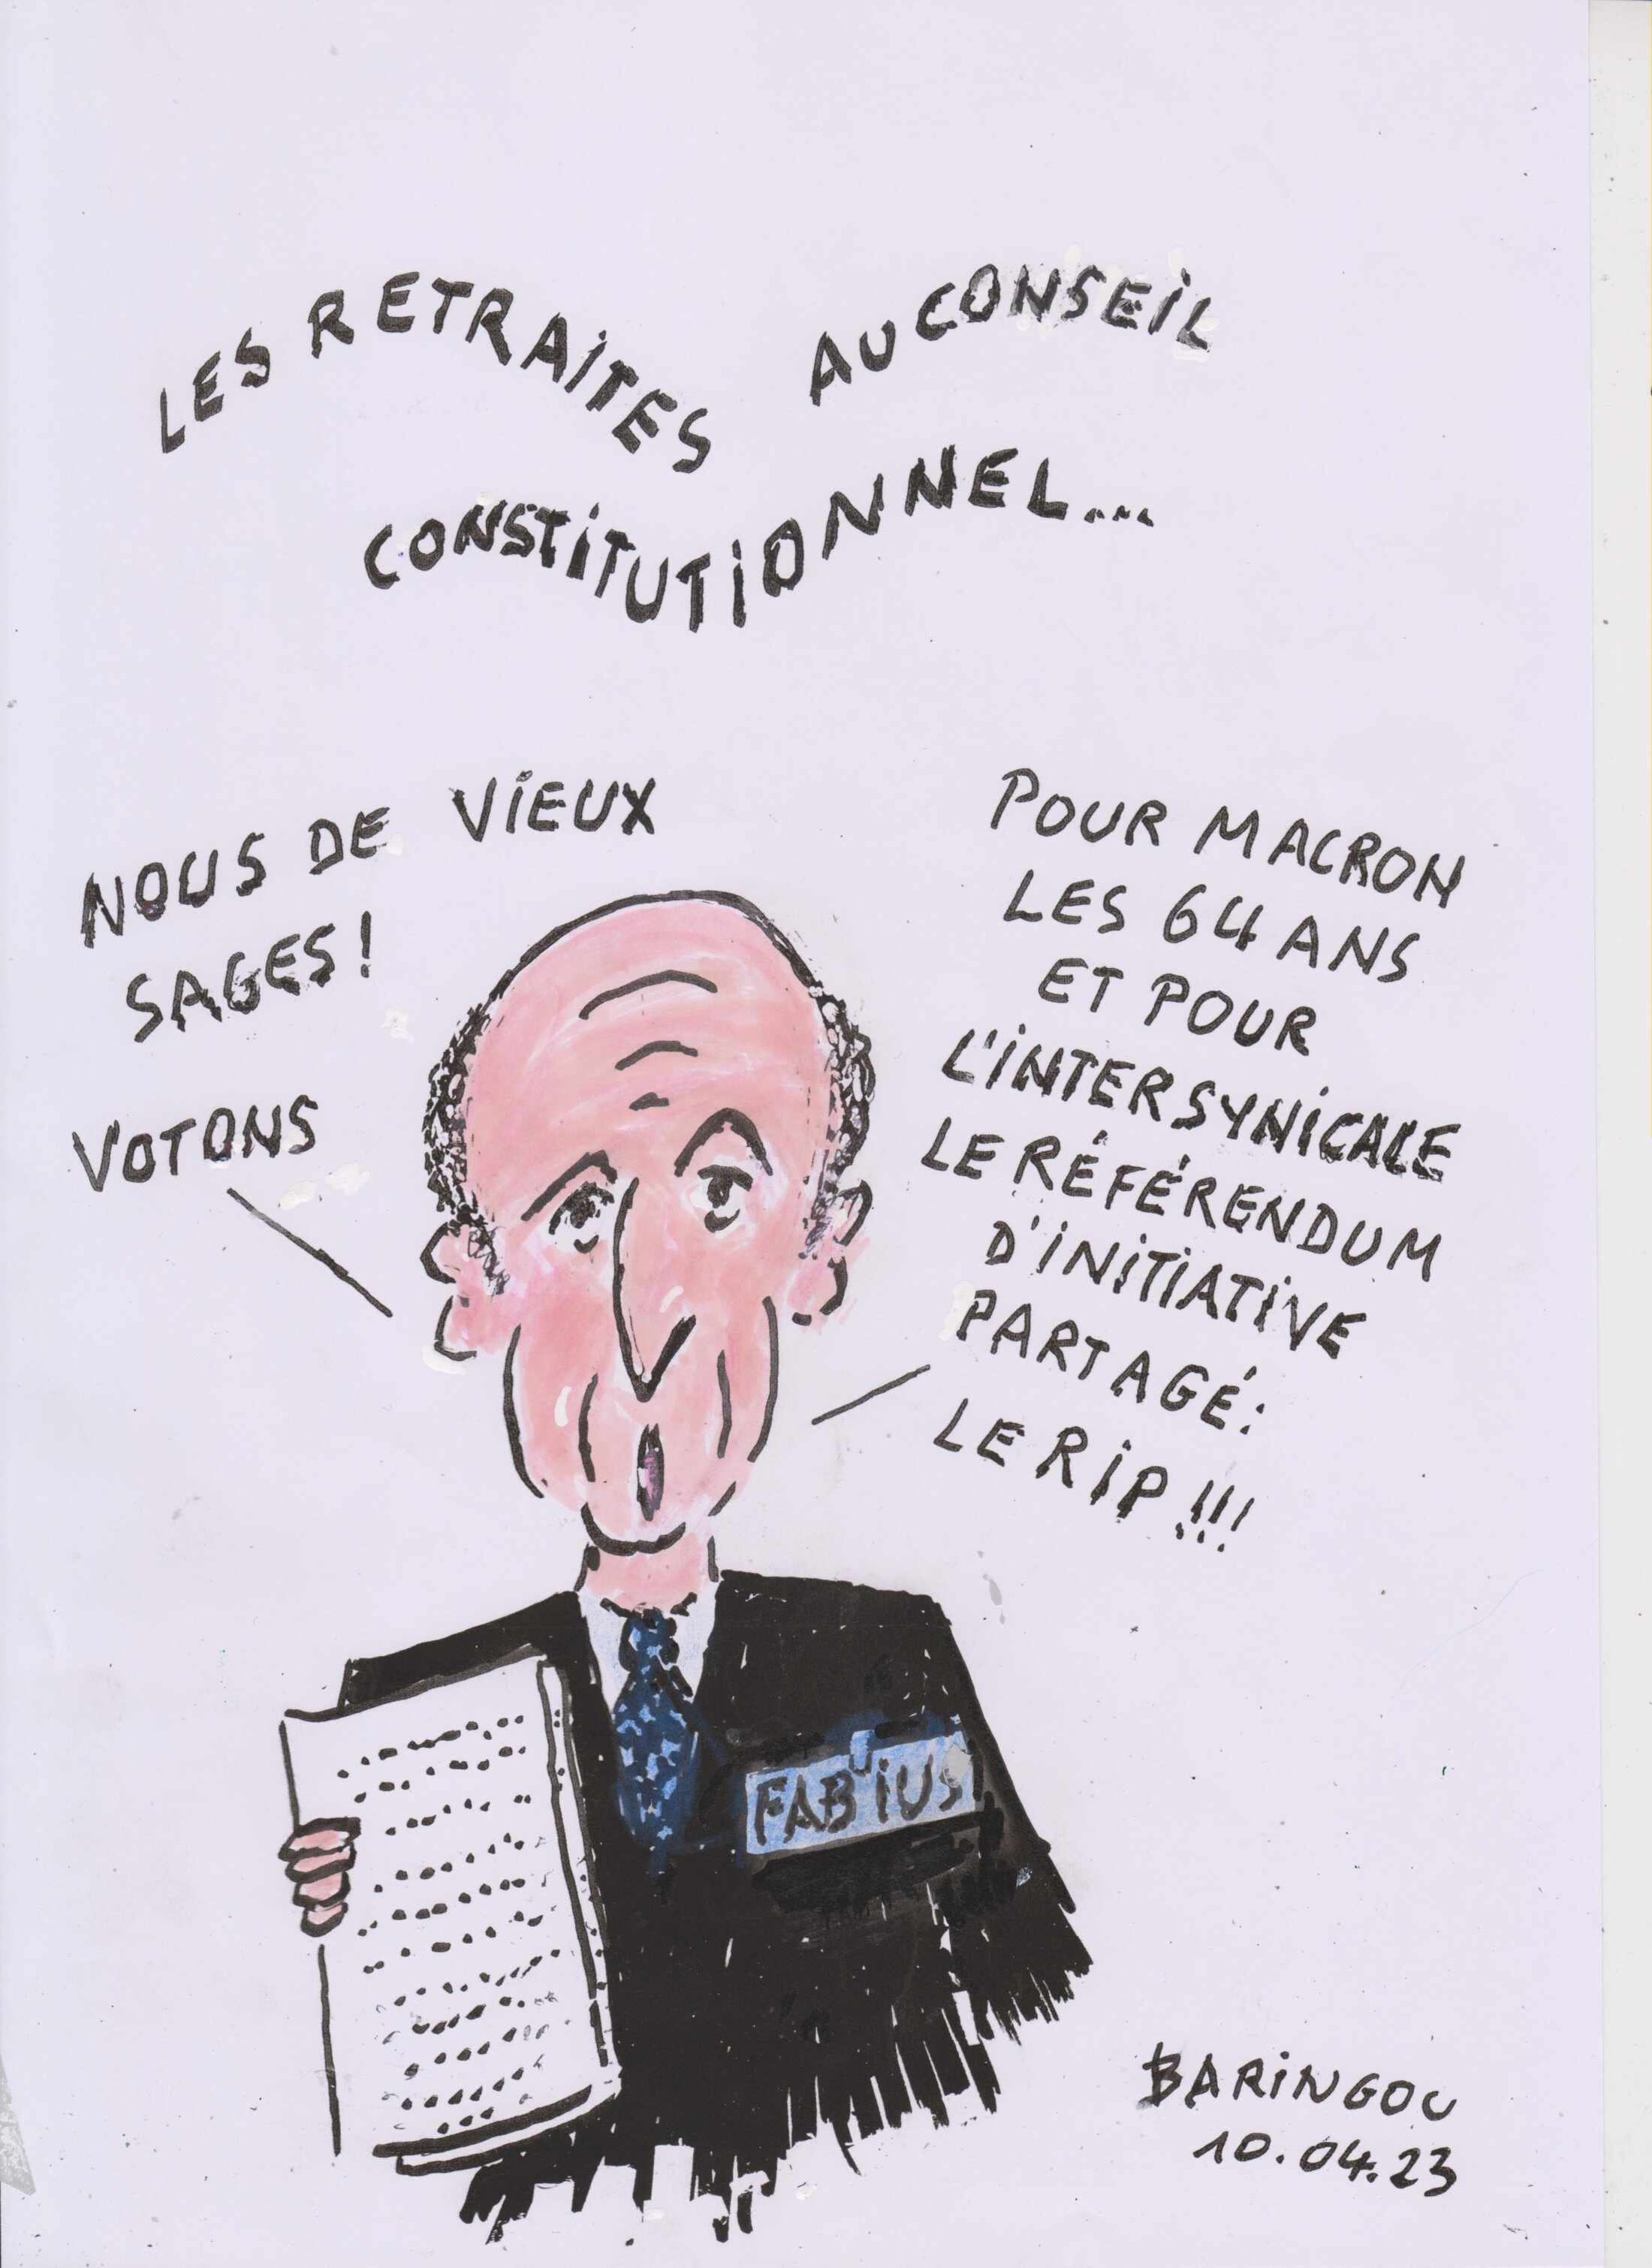 LES RETRAITES AU CONSEIL
CONSTITUTIONNEL...
NOUS DE VIEUX
SAGES!
VOTONS
POUR MACRON
LES 64 ANS
ET POUR
L'INTERSYNICALE
LE RÉFÉRENDUM
D'INITIATIVE
PARTAGÉ:
LE RIP!!!
FAB'IUS
BARINGOU
10.04.23